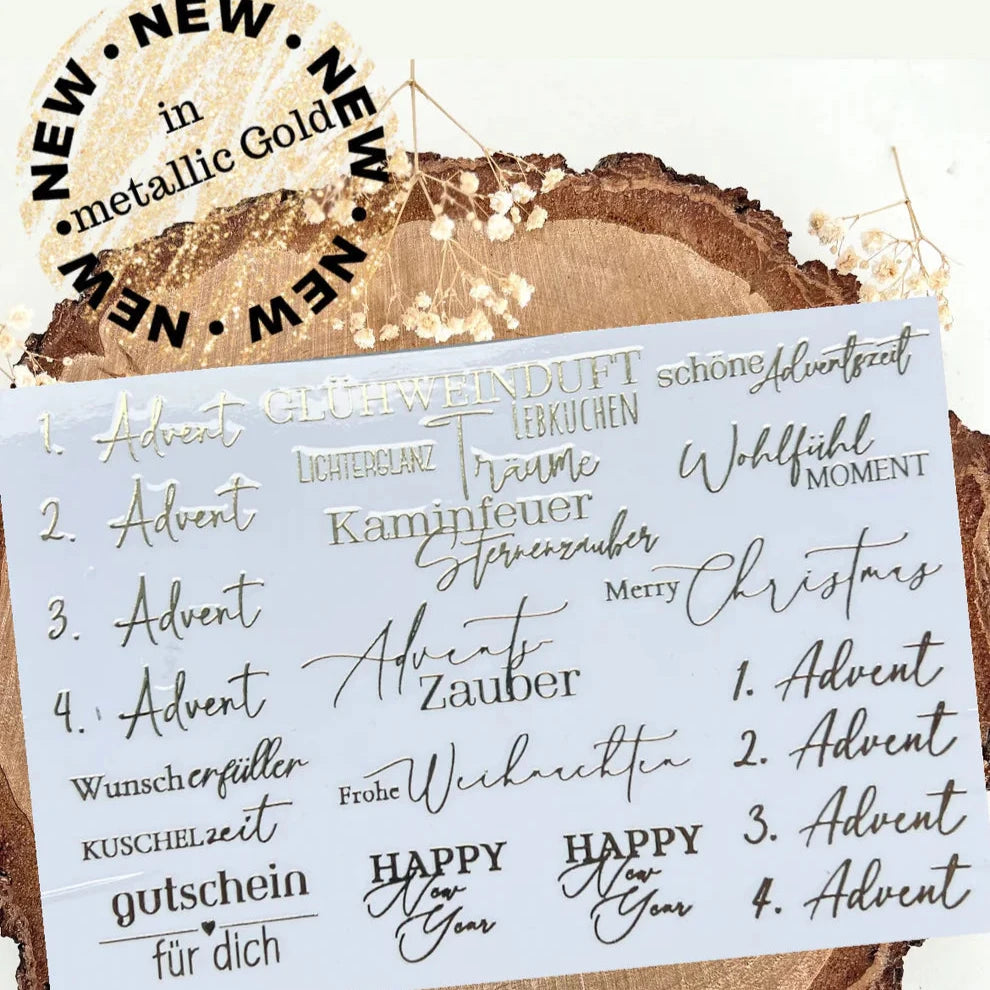 NEW • NEW • NEW • NEW • NEW • NEW • NEW •
in
metallic Gold
1. Advent
2. Advent
3. Advent
4. Advent
Wunscherfüller
KUSCHELzeit
gutschein
für dich
GLÜHWEINDUFT
LEBKUCHEN
LICHTERGLANZ
Träume
Kaminfeuer
Sternenzauber
Advents
Zauber
Frohe Weihnachten
HAPPY
New
Year
HAPPY
New
Year
schöne Adventszeit
Wohlfühl
MOMENT
Merry Christmas
1. Advent
2. Advent
3. Advent
4. Advent